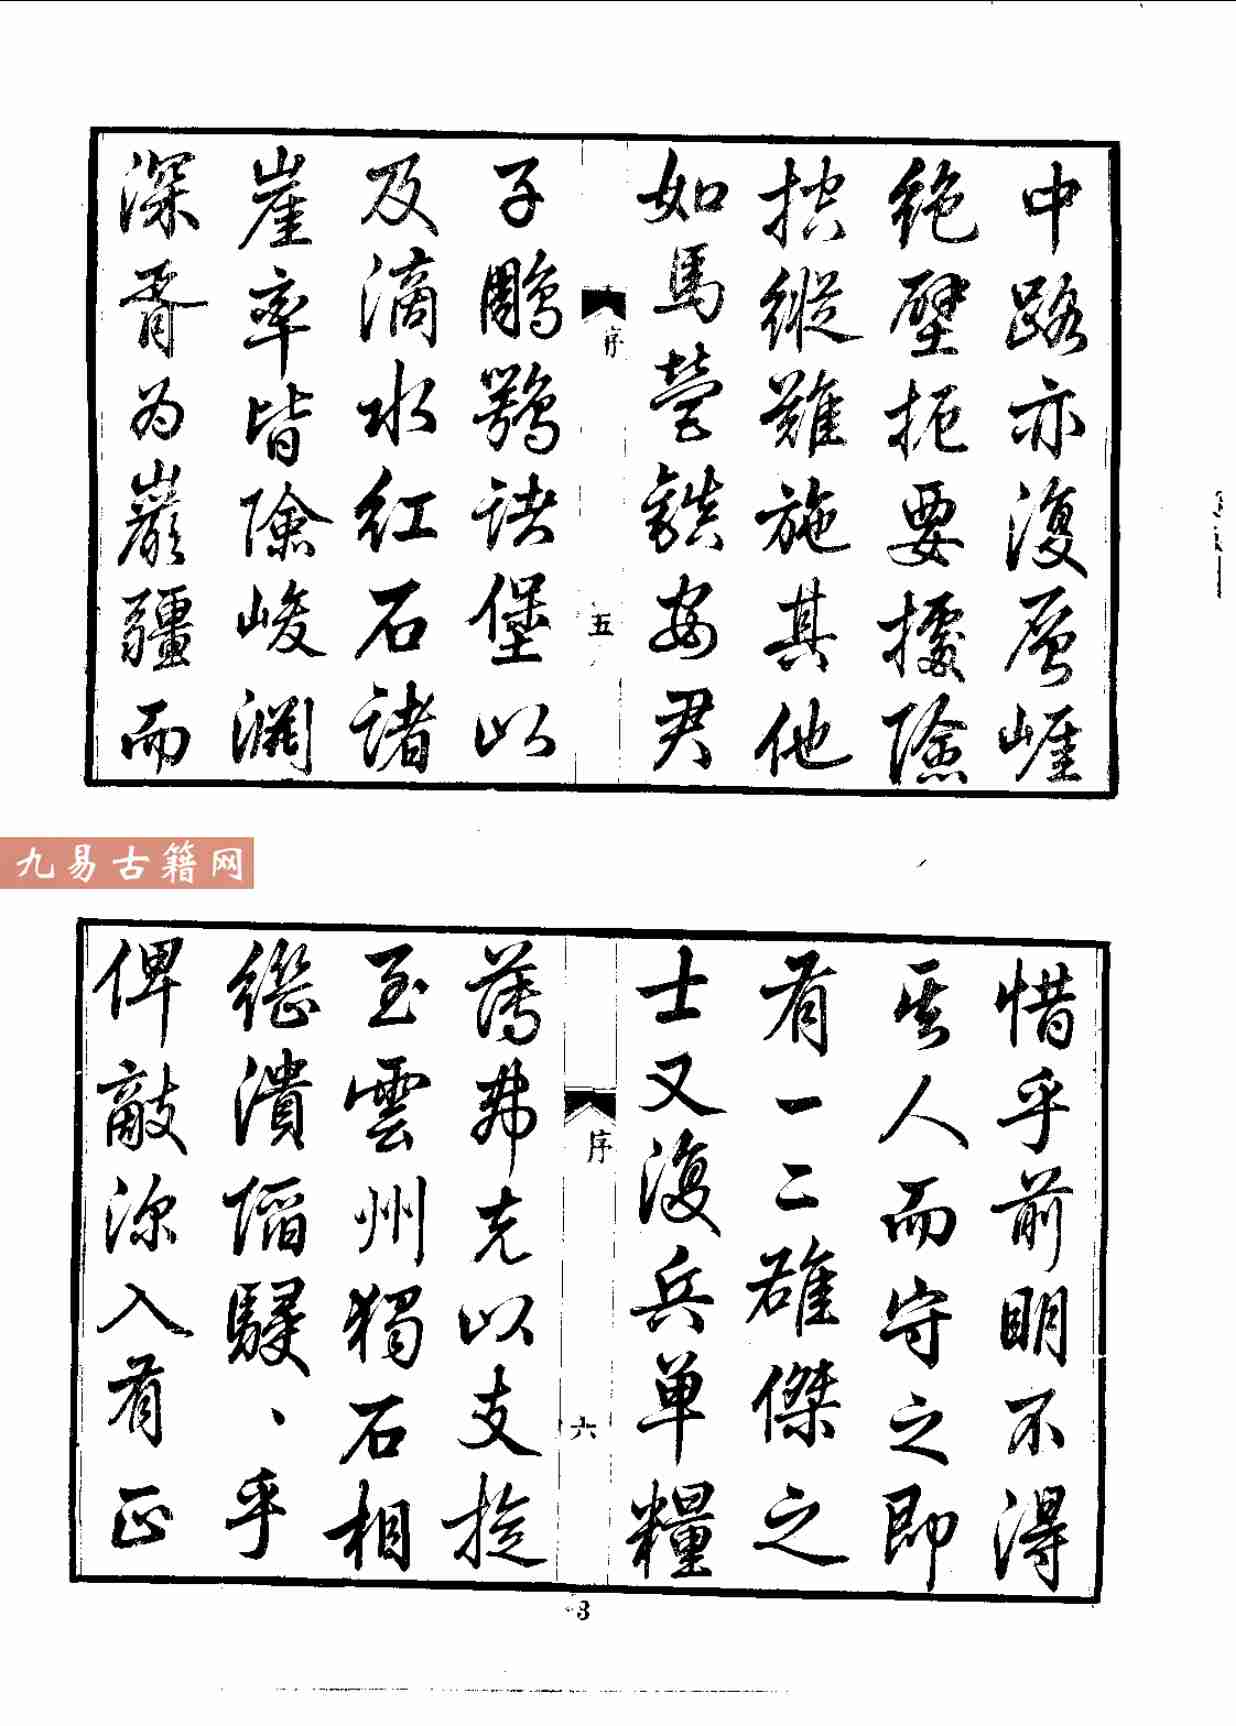 中路亦復層崕
絶壁扼要據險
控縱難施其他
如馬營鎮安君
序
五
子鵰鶚諸堡以
及滴水紅石諸
崖率皆險峻淵
深胥為巖疆而
九易古籍网
惜乎前明不得
其人而守之即
有一二雄傑之
士又復兵單糧
序
六
薄弗克以支旋
至雲州獨石相
繼潰陷駸、乎
俾敵深入有正
3